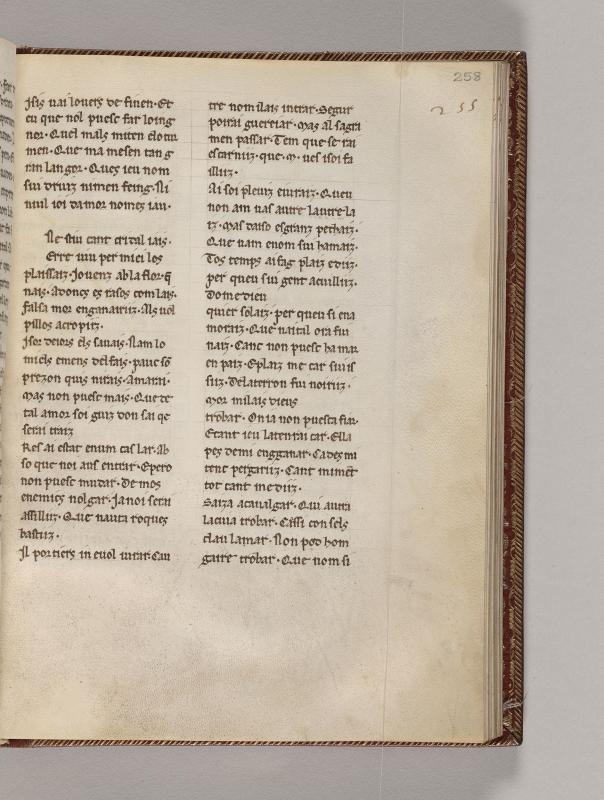 258
255
Isis uai louers de finen. Et
eu que nol puesc far loing
ner. Quel mals miten
men. Que ma mesen tan g
ran langor. Ques ieu nom
sui druiz nimen feing. Ni
nuil ioi damor nomes iau.
Ne siu cant cridal iais.
Erre iuu per miei los
plaissaiz. Jouenz abla flor. q̄
nais. Adonces es rasos com lais.
falsa mor enganairiz. Als uol
pillos acropitz.
els sauais. Nam lo
miels emens delfais. pauc sō
prezon quis nirais. Amarai.
Mas non puesc mais. Que te
tal amor soi guiz don sai qe
serai traiz
Res ai estar enum cas lar. Ab
so que noi aus entrar. Epero
non puesc mudar. De mos
enemics nol gar. Ja noi serai
assilliz. Que nauta roques
bastiz.
Il portiers in euol iurar. Cau
tre nom ilais intrar. Segur
poirai guereiar. Mas al sagra
men passar. Tem que se rai
escarniz. que. m. ues isoi fa
illiz.
Ai soi pleuiz eiuraiz. Queu
non am uas autre lautre la
iz. Mas daiso esgranz pechaiz.
Que uam enom sui hamaiz.
Tos temps aifag plaiz ediz.
per queu sui gent acuilliz.
domedieu
quier solaiz. per queu si ena
moraiz. Que naital ora fui
naiz. Canc non puesc ha mar
en paiz. Eplaiz me car sui is
siz. Delaterron fui noiriz.
Mor milais dieus
trobar. On ia non puesca fiar.
Ecant ieu latenrai car. Ella
pes demi engganar. Cadesmi
tenc pergariz. Cant mimēt
tot cant me diz.
Saiza acaualgar. Qui aura
lacuia trobar. Cissi con sels
clau lamar. Non pod hom
gaire trobar. Que nom si